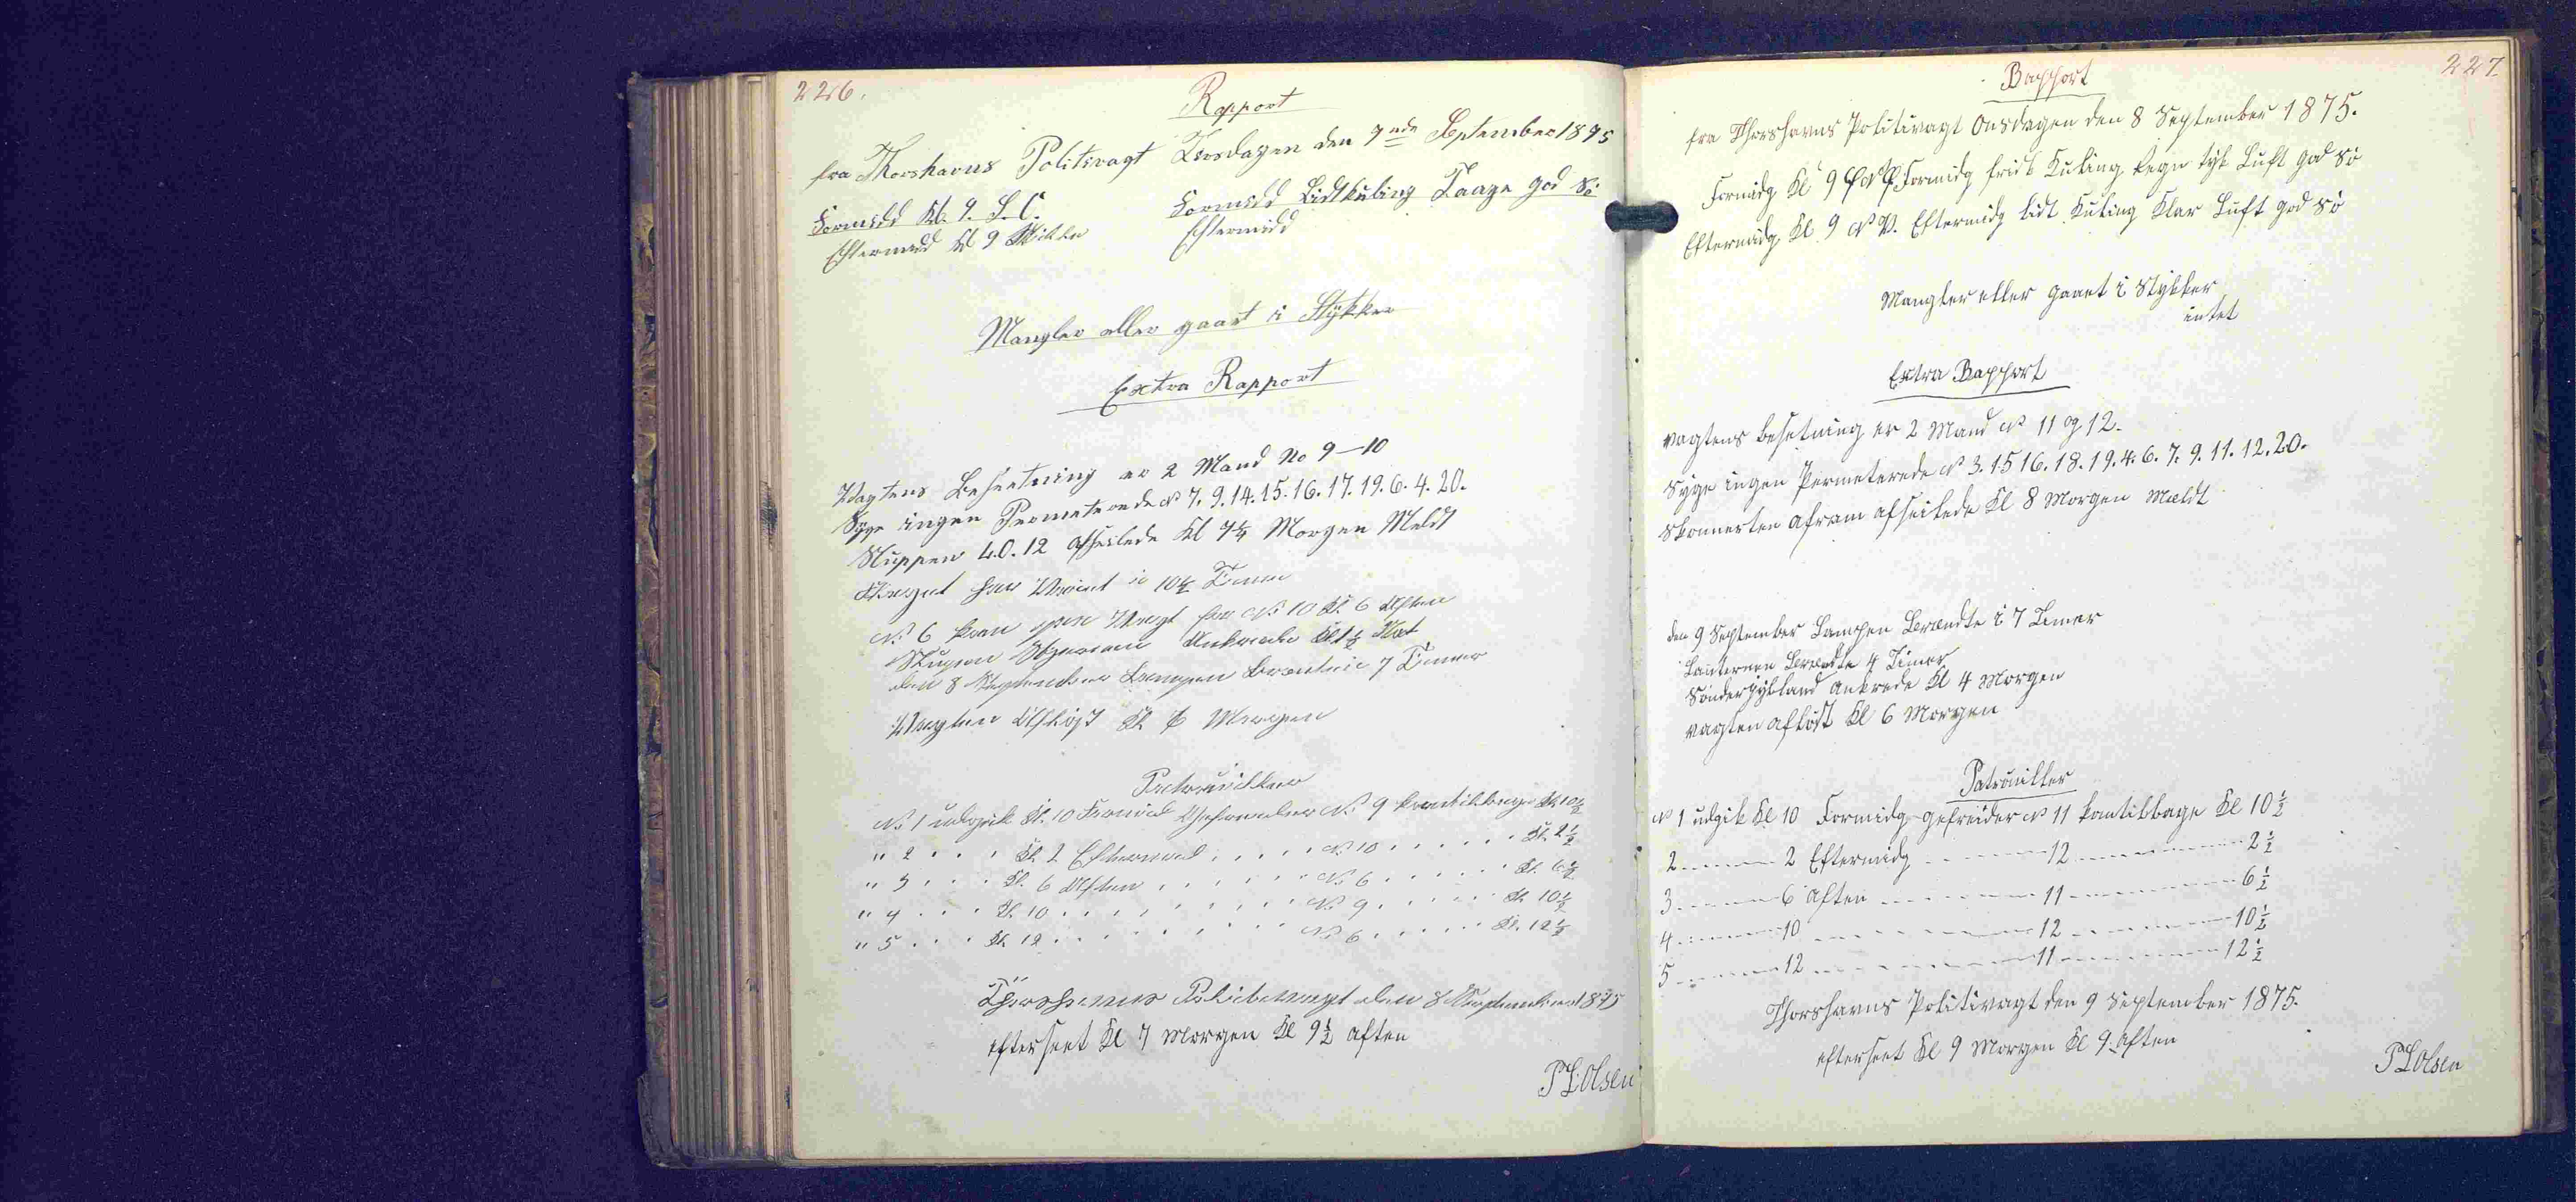 226.
Rapport
fra Thorshavns Politivagt Tirsdagen den 7nde September 1875
Formidd Kl. 9. S. C. Formidd Lidt Kuling Taage god Sö
Eftermidd Kl 9 Stille Eftermidd
Mangler eller gaaet i Stÿkker
Extra Rapport
Vagtens Besætning er 2 Mand No 9-10
Syge ingen Permeterede No 7. 9. 14. 15. 16. 17. 19. 6. 4. 20.
Sluppen 40.12 afseilede Kl 7¼ Morgen Meldt
Flaget har Vaiet i 10½ Timer
No 6 kom paa Vagt for No 10 Kl. 6 Aften
Ankrede Kl 1½ Nat
den 8 September Lampen Brændte i 7 Timer
Vagten Aflöst Kl. 6 Morgen
Patrouiller
No 1 udgik Kl. 10 Formid Gefreider No 9 komtilbage Kl 10½
" 2 . . . Kl. 2 Eftermid . . . . No 10 . . . . . . Kl. 2½
" 3 . . . Kl. 6 Aften . . . . . . No 6 . . . . . . Kl. 6½
" 4 . . . Kl. 10 . . . . . . . . No 9 . . . . . . Kl. 10½
" 5 . . . Kl. 12 . . . . . . . . No 6 . . . . . . Kl. 12½
Thorshavns Politivagt den 8 September 1875
efterseet Kl 7 Morgen Kl 9½ aften
P L Olsen
227.
Rapport
fra Thorshavns Politivagt Onsdagen den 8 September 1875.
Formidg Kl 9 Formidg frisk Kuling Regn tÿk Luft god Sö
Eftermidg Kl. 9 N V. Eftermidg lidt Kuling Klar Luft god Sö
Mangler eller gaaet i Stÿkker
intet
Extra Rapport
vagtens Besetning er 2 Mand No 11 og 12.
Syge ingen Permeterede No 3. 15 16. 18. 19. 4. 6. 7. 9. 11. 12. 20.
Skonnerten afram afseilede Kl 8 Morgen Meldt
den 9 September Lampen Brændte i 7 Timer
Lanternen Brændte 4 Timer
Sönderjÿlland ankrede Kl 4 Morgen
vagten aflöst Kl 6 Morgen
Patrouiller
No 1 udgik Kl 10 Formidg gefreider No 11 komtilbage Kl 10½
2 ------ 2 Eftermidg ------ 12 ------ 2½
3 ------ 6 Aften ------ 11 ------ 6½
4 ------ 10 ------ 12 ------ 10½
5 ------ 12 ------ 11 ------ 12½
Thorshavns Politivagt den 9 September 1875.
efterseet Kl 9 Morgen Kl 9 aften
P L Olsen